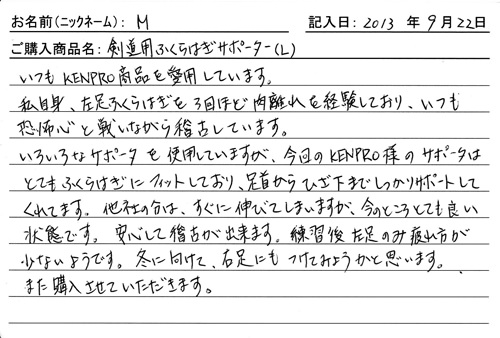 お名前(ニックネーム): M 記入日: 2013 年 9 月 22 日
ご購入商品名: 剣道用ふくらはぎサポーター(L)
いつも KENPRO商品を愛用しています。
私自身、左足ふくらはぎを3回ほど肉離れを経験しており、いつも
恐怖心と戦いながら稽古しています。
いろいろなサポータを使用していますが、今回のKENPRO様のサポータは
とてもふくらはぎにフィットしており、足首からひざ下までしっかりサポートして
くれてます。他社の分は、すぐに伸びてしまいますが、今のところとても良い
状態です。安心して稽古が出来ます。練習後左足のみ疲れ方が
少ないようです。冬に向けて、右足にもつけてみようかと思います。
また購入させていただきます。